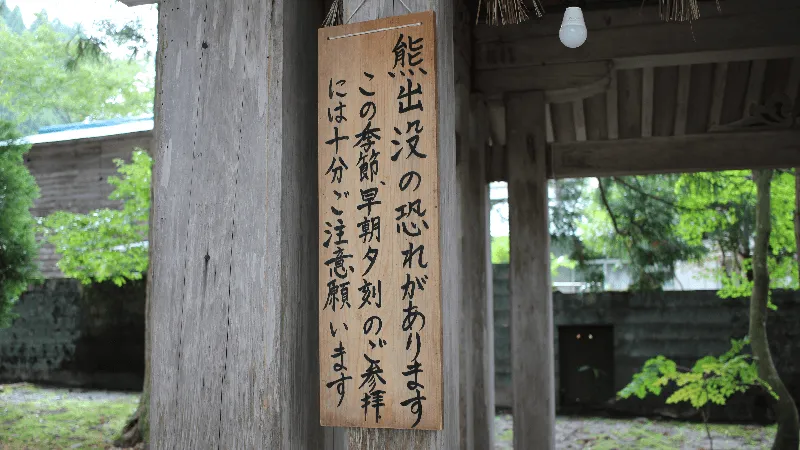 熊出没の恐れがあります
この季節、早朝夕刻のご参拝
には十分ご注意願います